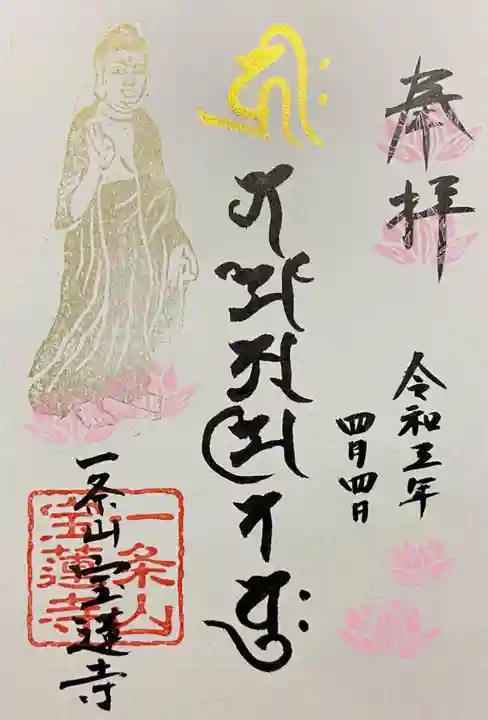 奉拝
令和三年
四月四日
𑖮𑖿𑖨𑖱𑖾
一条山宝蓮寺
一条山
宝蓮寺